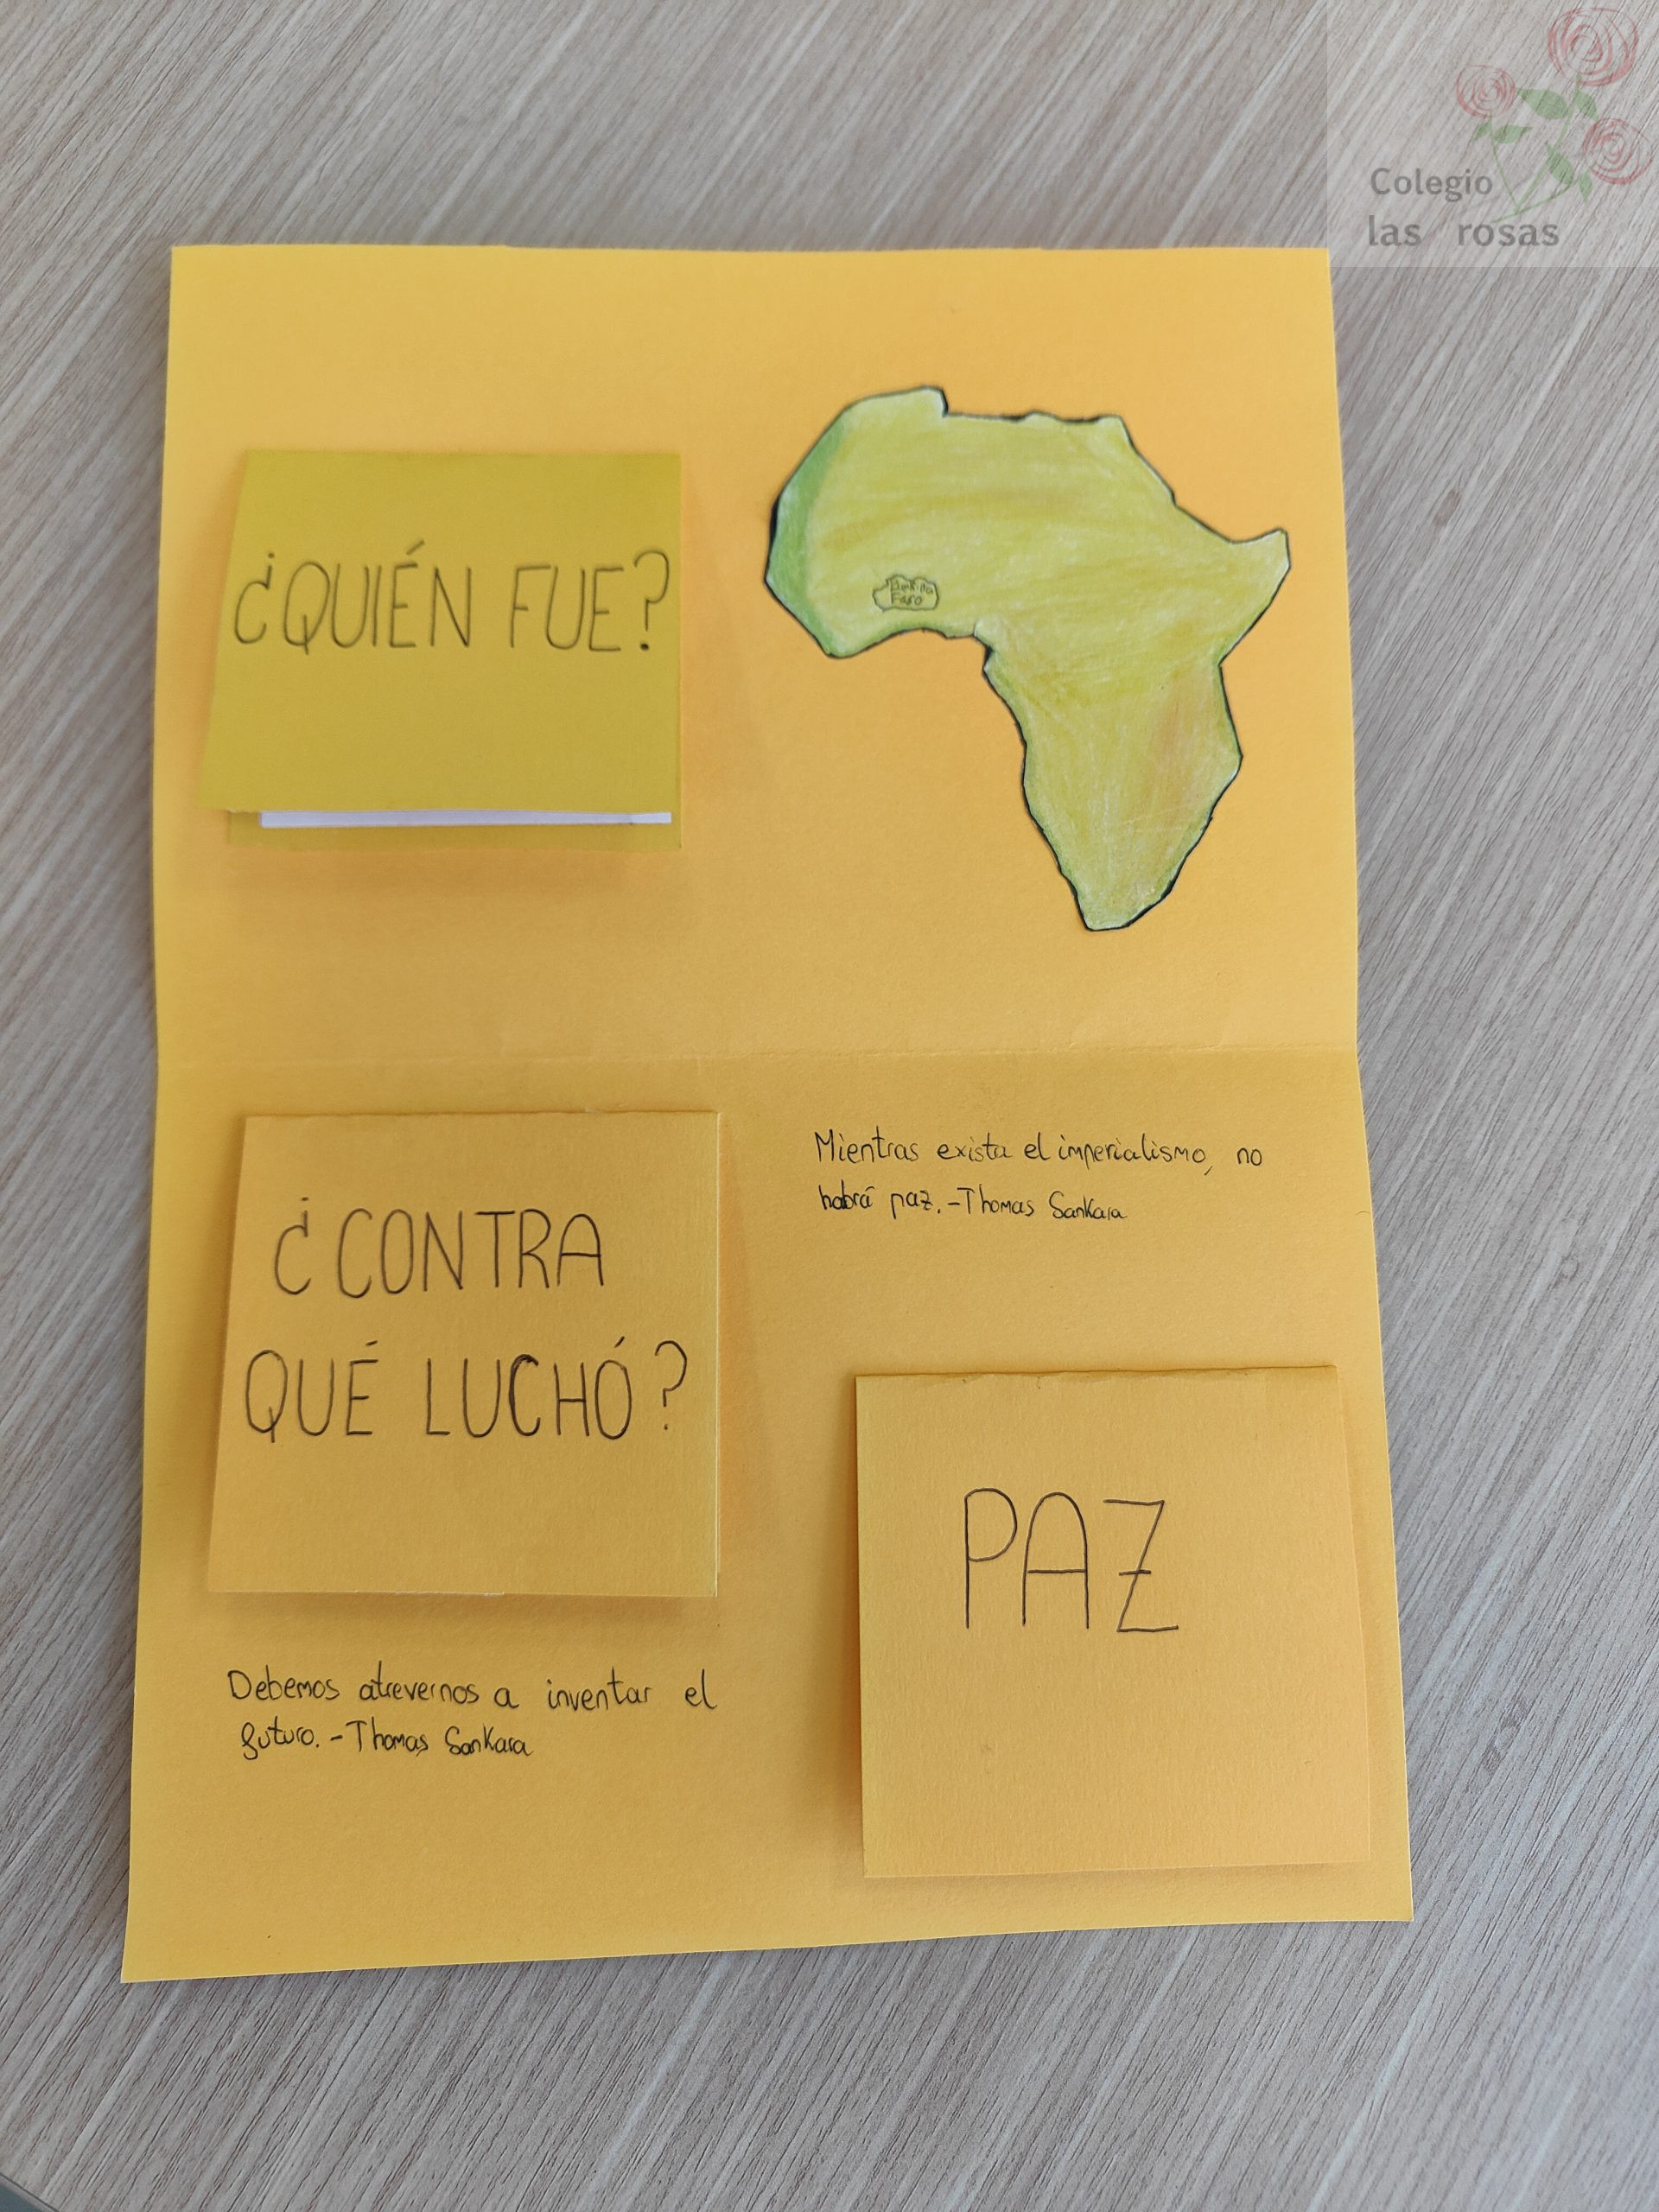 Colegio
las rosas
¿QUIÉN FUE?
Burkina
Faso
¿CONTRA
QUÉ LUCHÓ?
Mientras exista el imperialismo, no
habrá paz.-Thomas Sankara
PAZ
Debemos atrevernos a inventar el
futuro.-Thomas Sankara